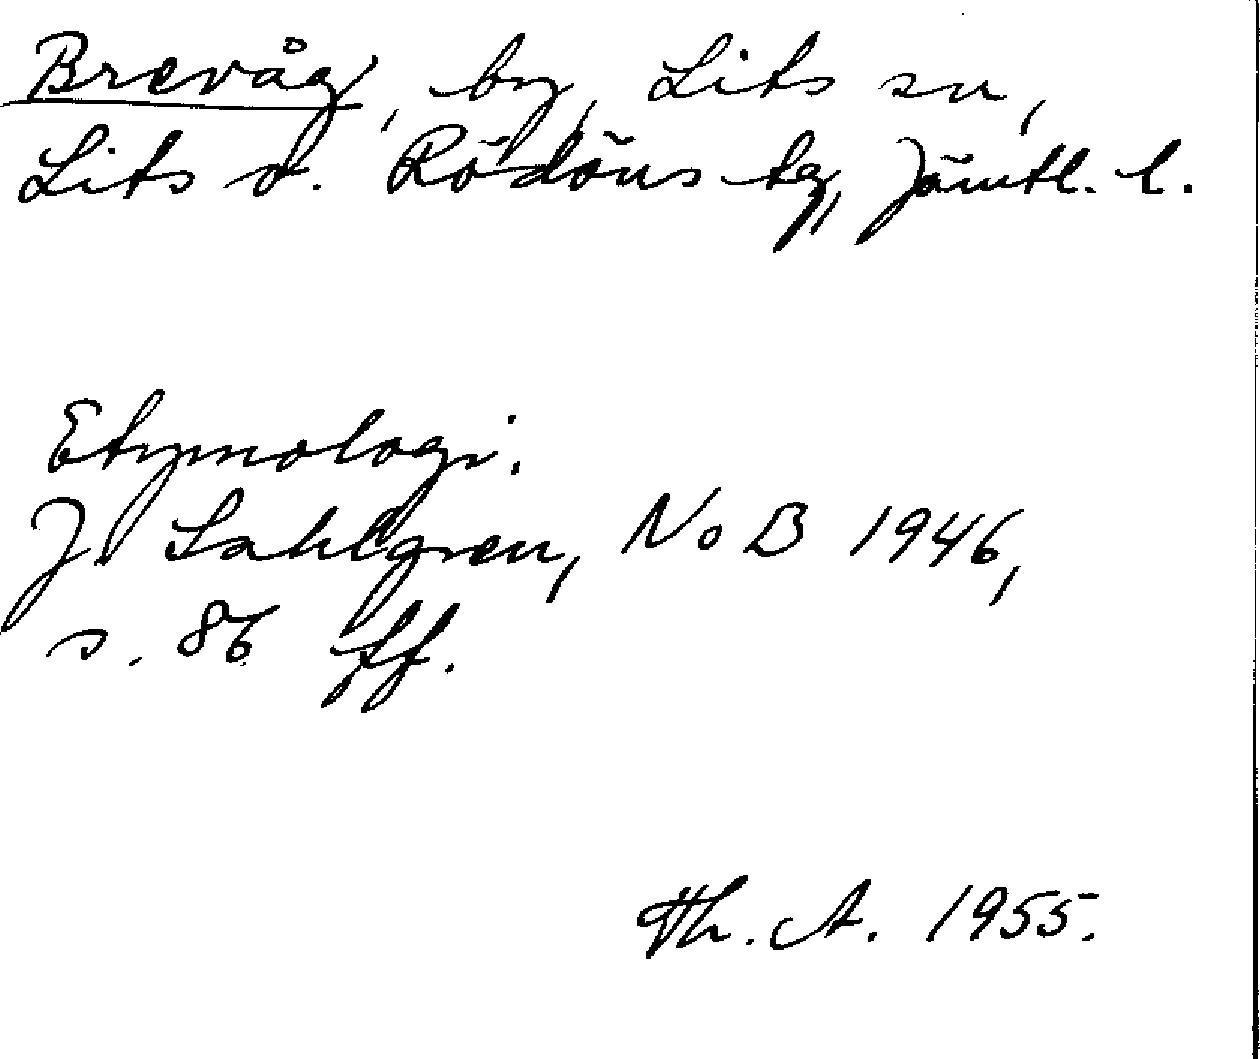 Brevåg, by, Lits sn,
Lits o. Rödöns tg, Jämtl. l.
Etymologi.
J. Sahlgren, NoB 1946,
s. 86 ff.
Th. A. 1955.